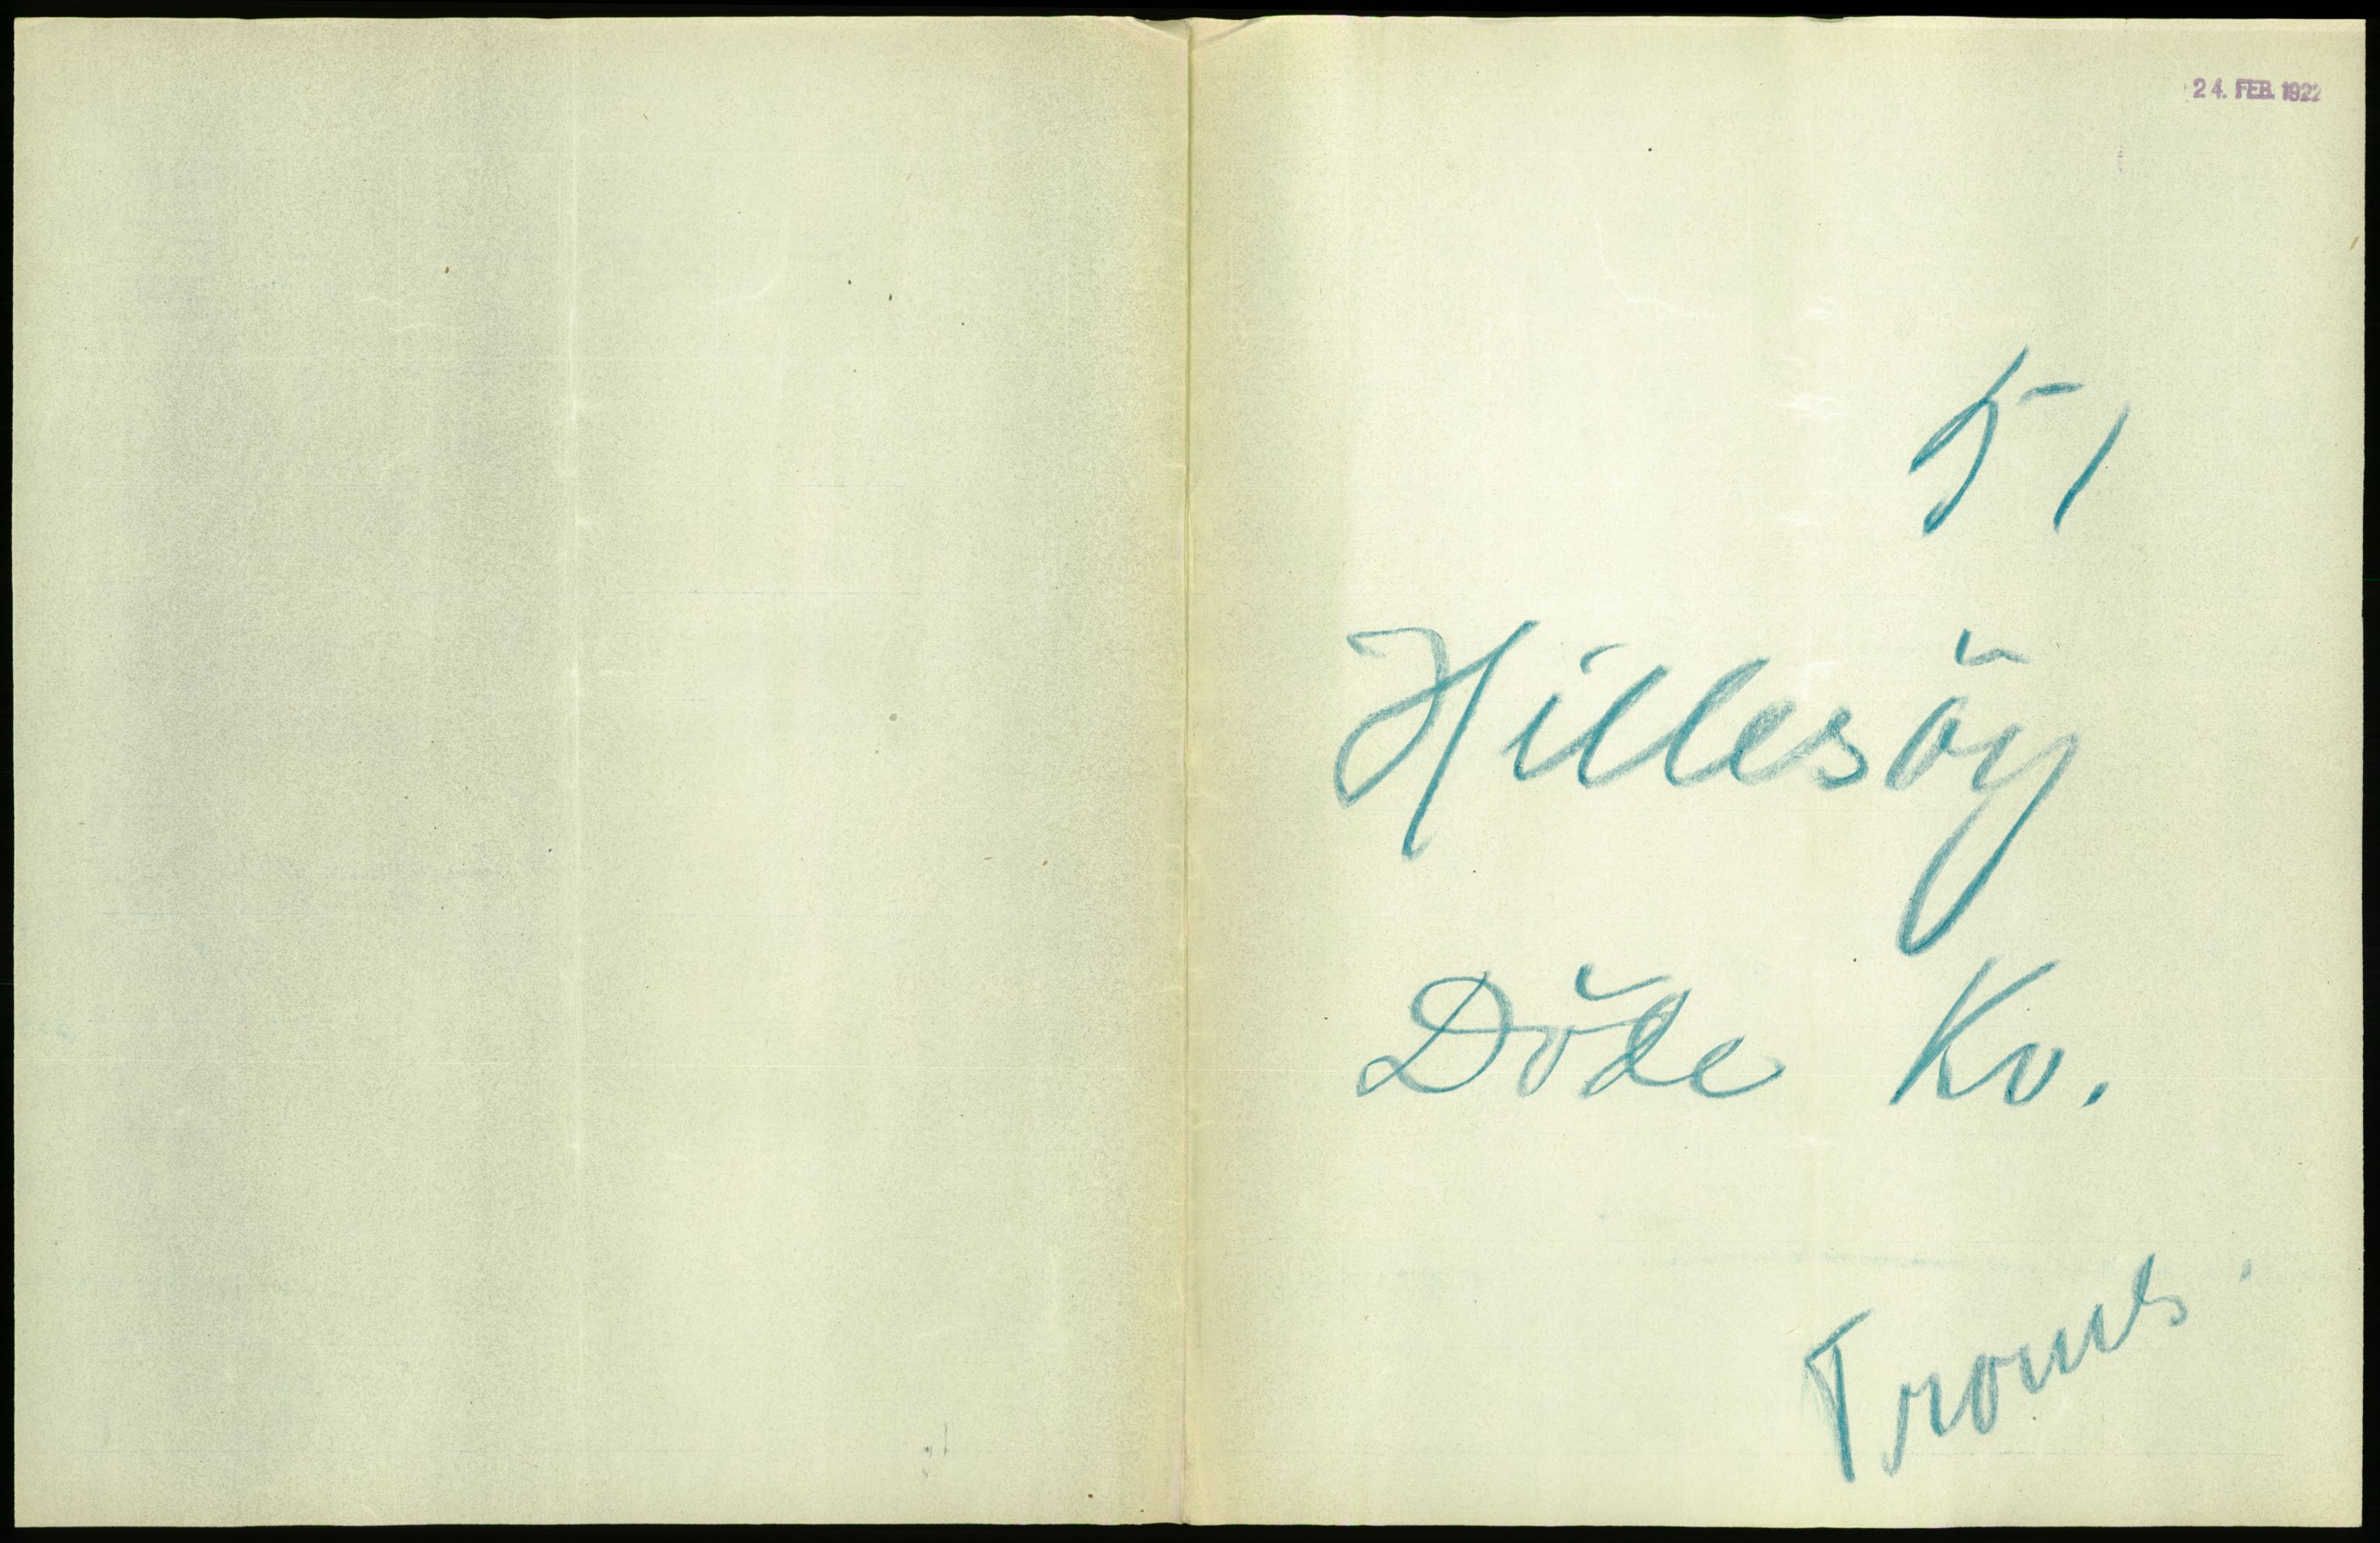 24. FEB. 1922
51
Hillesöy
Döde Kv.
Troms